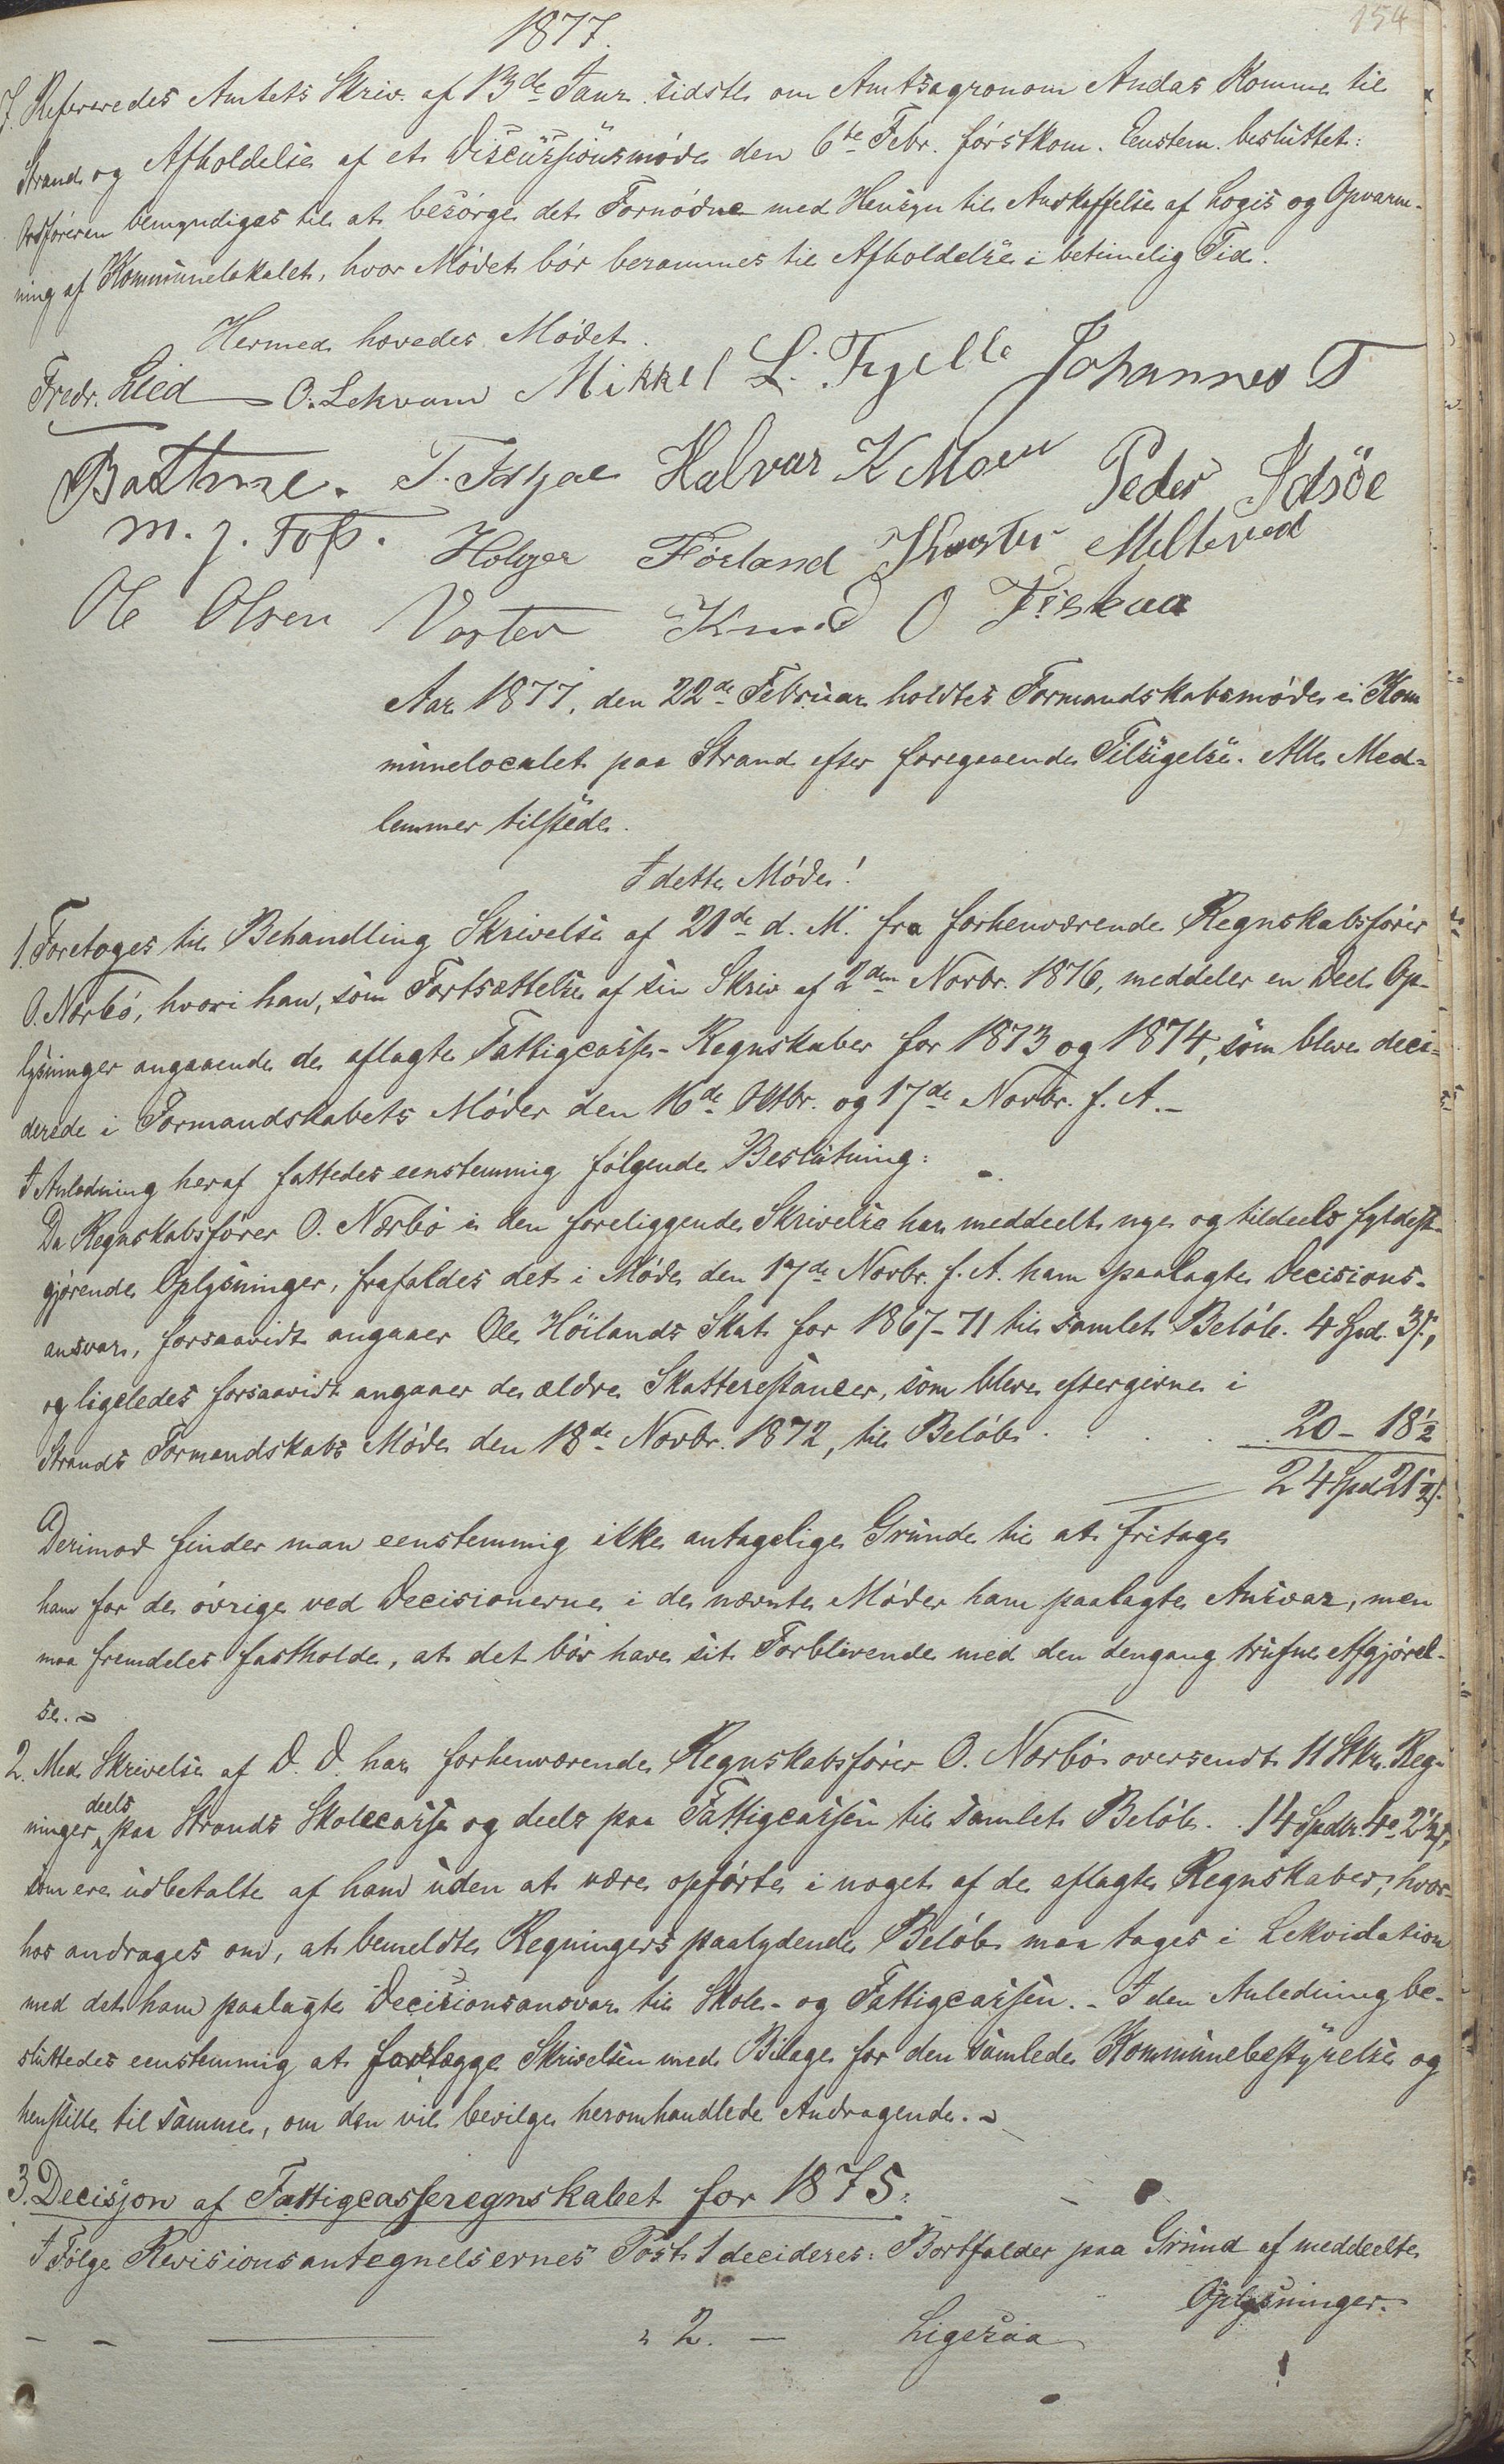 154
1877.
7. Refereredes Amtets Skriv. af 13de Janr. sidstl. om Amtsagronom Andas Komme til
Strand og Afholdelse af et Discussionsmøde den 6te Febr. førstkom. Eenstem. besluttet:
Ordføreren bemyndiges til at besørge det Fornødne med Hensyn til Anskaffelse af Logis og Opvarm-
ning af Kommunelokalet, hvor Mødet bør berammes til Afholdelse i betimelig Tid.
Hermed hævedes Mødet.
Fredr. Lied O. Lekvam Mikkel L. Fjelle Johannes T
Barkme. T. Idsjøe Halvar K Moen Peder Idsöe
M. J. Foss. Holger Førland Thorster Melteved
Ole Olsen Voster Knud O Fiskaa
Aar 1877, den 22de Februar holdtes Formandskabsmøde i Kom
munelocalet paa Strand efter foregaaende Tilsigelse. Alle Med-
lemmer tilstede.
I dette Møde!
1. Foretoges til Behandling Skrivelse af 21de d. M. fra forhenværende Regnskabsfører
O. Nærbø, hvori han, som Fortsættelse af sin Skriv. af 2den Novbr. 1876, meddeler en Deel Op-
lysninger angaaende de aflagte Fattigcasse-Regnskaber for 1873 og 1874, som bleve deci-
derede i Formandskabets Møder den 16de Oktbr. og 17de Novbr. f. A. -
I Anledning heraf fattedes eenstemmig følgende Beslutning:
Da Regnskabsfører O. Nærbø i den foreliggende Skrivelse har meddeelt nye og tildeels fyldest-
gjørende Oplysninger, frafaldes det i Møde den 17de Novbr. f. A. ham paalagte Decisions-
ansvar, forsaavidt angaaer Ole Høilands Skat for 1867-71 til samlet Beløb. 4 Spd. 3 s,
og ligeledes forsaavidt angaaer de ældre Skatterestancer, som bleve eftergivne i
Strands Formandskabs Møde den 18de Novbr. 1872, til Beløb . . . . 20 - 18½
24 Spd 21½ s.
Derimod finder man eenstemmig ikke antagelige Grunde til at fritage
ham for de øvrige ved Decisionerne i de nævnte Møder ham paalagte Ansvar, men
maa fremdeles fastholde, at det bør have sit Forblivende med den dengang trufne Afgjørel-
se. -
2. Med Skrivelse af D. D. har forhenværende Regnskabsfører O. Nærbø oversendt 11 Stkr. Reg-
ninger deels paa Strands Skolecasse og deels paa Fattigcassen til samlet Beløb. . 14 Spdlr. 4 o. 2½ s,
som ere udbetalte af ham uden at være opførte i noget af de aflagte Regnskaber, hvor-
hos andrages om, at bemeldte Regningers paalydende Beløb maa tages i Lekvidation
med det ham paalagte Decisionsansvar til Skole- og Fattigcassen. - I den Anledning be-
sluttedes eenstemmig at forelægge Skrivelsen med Bilage for den samlede Kommunebestyrelse og
henstille til samme, om den vil bevilge heromhandlede Andragende. -
3. Decisjon af Fattigcasseregnskabet for 1875.
I Følge Revisionsantegnelsernes Post 1 decideres: Bortfalder paa Grund af meddeelte
Oplysninger.
- - —— " 2. — Ligesaa